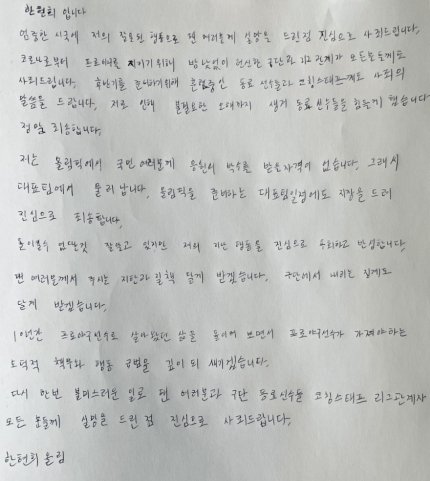 한현희 입니다
엄중한 시국에 저의 잘못된 행동으로 팬 여러분께 실망을 드린점 진심으로 사죄드립니다.
코로나로부터 프로야구를 지키기위해 밤낮없이 헌신한 구단과 리그 관계자 모든분들께도
사죄드립니다. 후반기를 준비하기위해 훈련중인 동료 선수들과 코칭스태프께도 사죄의
말씀을 드립니다. 저로 인해 불필요한 오해까지 생겨 동료 선수들을 힘들게 했습니다
정말 죄송합니다.
저는 올림픽에서 국민 여러분께 응원의 박수를 받을자격이 없습니다. 그래서
대표팀에서 물러납니다. 올림픽을 준비하는 대표팀일정에도 지장을 드려
진심으로 죄송합니다.
돌이킬수 없단것 잘알고 있지만 저의 지난 행동을 진심으로 후회하고 반성합니다.
팬 여러분께서 주시는 지탄과 질책 달게 받겠습니다. 구단에서 내리는 징계도
달게 받겠습니다.
10년간 프로야구선수로 살아왔던 삶을 돌이켜 보면서 프로야구선수가 가져야하는
도덕적 책무와 행동 규범을 깊이 되 새기겠습니다.
다시 한번 불미스러운 일로 팬 여러분과 구단 동료선수들 코칭스태프 리그관계자
모든 분들께 실망을 드린 점 진심으로 사죄드립니다.
한현희 올림